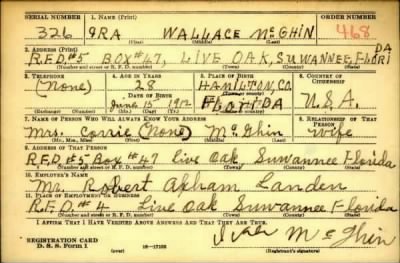 SERIAL NUMBER 1. NAME (Print) ORDER NUMBER
326 IRA WALLACE McGHIN 468
(First) (Middle) (Last)
2. ADDRESS (Print)
R.F.D.#5 BOX#47, LIVE OAK, SUWANNEE, FLORIDA
(Number and street or R. F. D. number) (Town) (County) (State)
3. TELEPHONE 4. AGE IN YEARS 5. PLACE OF BIRTH 6. COUNTRY OF CITIZENSHIP
(None) 28 HAMILTON, CO.
DATE OF BIRTH (Town or county)
June 15 1912 FLORIDA U.S.A.
(Exchange) (Number) (Mo.) (Day) (Yr.) (State or country)
7. NAME OF PERSON WHO WILL ALWAYS KNOW YOUR ADDRESS 8. RELATIONSHIP OF THAT PERSON
Mrs. Corrie (None) McGhin Wife
(Mr., Mrs., Miss) (First) (Middle) (Last)
9. ADDRESS OF THAT PERSON
R.F.D.#5 Box#47 Live Oak Suwannee Florida
(Number and street or R. F. D. number) (Town) (County) (State)
10. EMPLOYER'S NAME
Mr. Robert Landen
11. PLACE OF EMPLOYMENT OR BUSINESS
R.F.D.#4 Live Oak Suwannee Florida
(Number and street or R. F. D. number) (Town) (County) (State)
I AFFIRM THAT I HAVE VERIFIED ABOVE ANSWERS AND THAT THEY ARE TRUE.
REGISTRATION CARD
D. S. S. Form 1 (over) 16-17105 (Registrant's signature)
McGhin